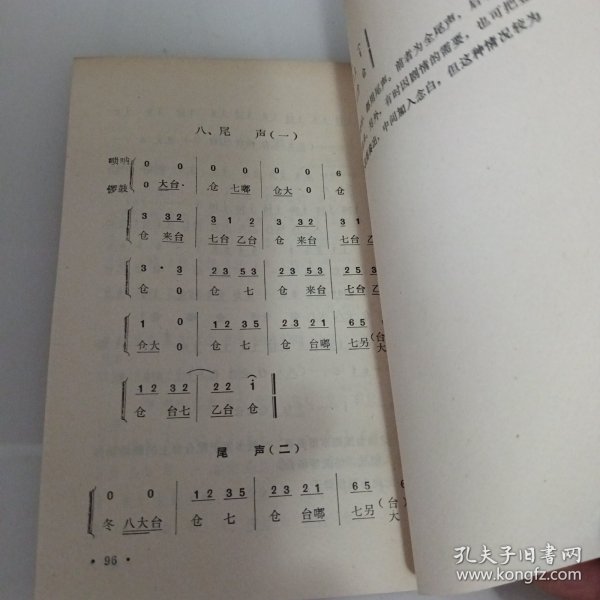 八、尾 声(一)
唢呐 0 0 | 0 0 | 0 0 | 0
锣鼓 0 大台· | 仓 七嘟 | 仓大 0 | 仓
3 3 2 | 3 1 2 | 3 3 2 | 3 1 2
仓 来台 | 七台 乙台 | 仓 来台 | 七台 乙
3 · 3 | 2 3 5 3 | 2 3 5 3 | 2 3 5
仓 0 | 仓 七 | 仓 来台 | 七台
1 0 | 1 2 3 5 | 2 3 2 1 | 6 5
仓大 0 | 仓 七 | 仓 台嘟 | 七另 (台
大
1 2 3 2 | 2 2 i
仓 台七 | 乙台 仓
尾 声(二)
0 0 | 1 2 3 5 | 2 3 2 1 | 6 5 6
冬 八大台 | 仓 七 | 仓 台嘟 | 七另 (台
大
· 96 ·
都用尾声。前者为全尾声,后
另外,有时因剧情的需要,也可把
中间加入念白,但这种情况较为
孔夫子旧书网
www.kongfz.com